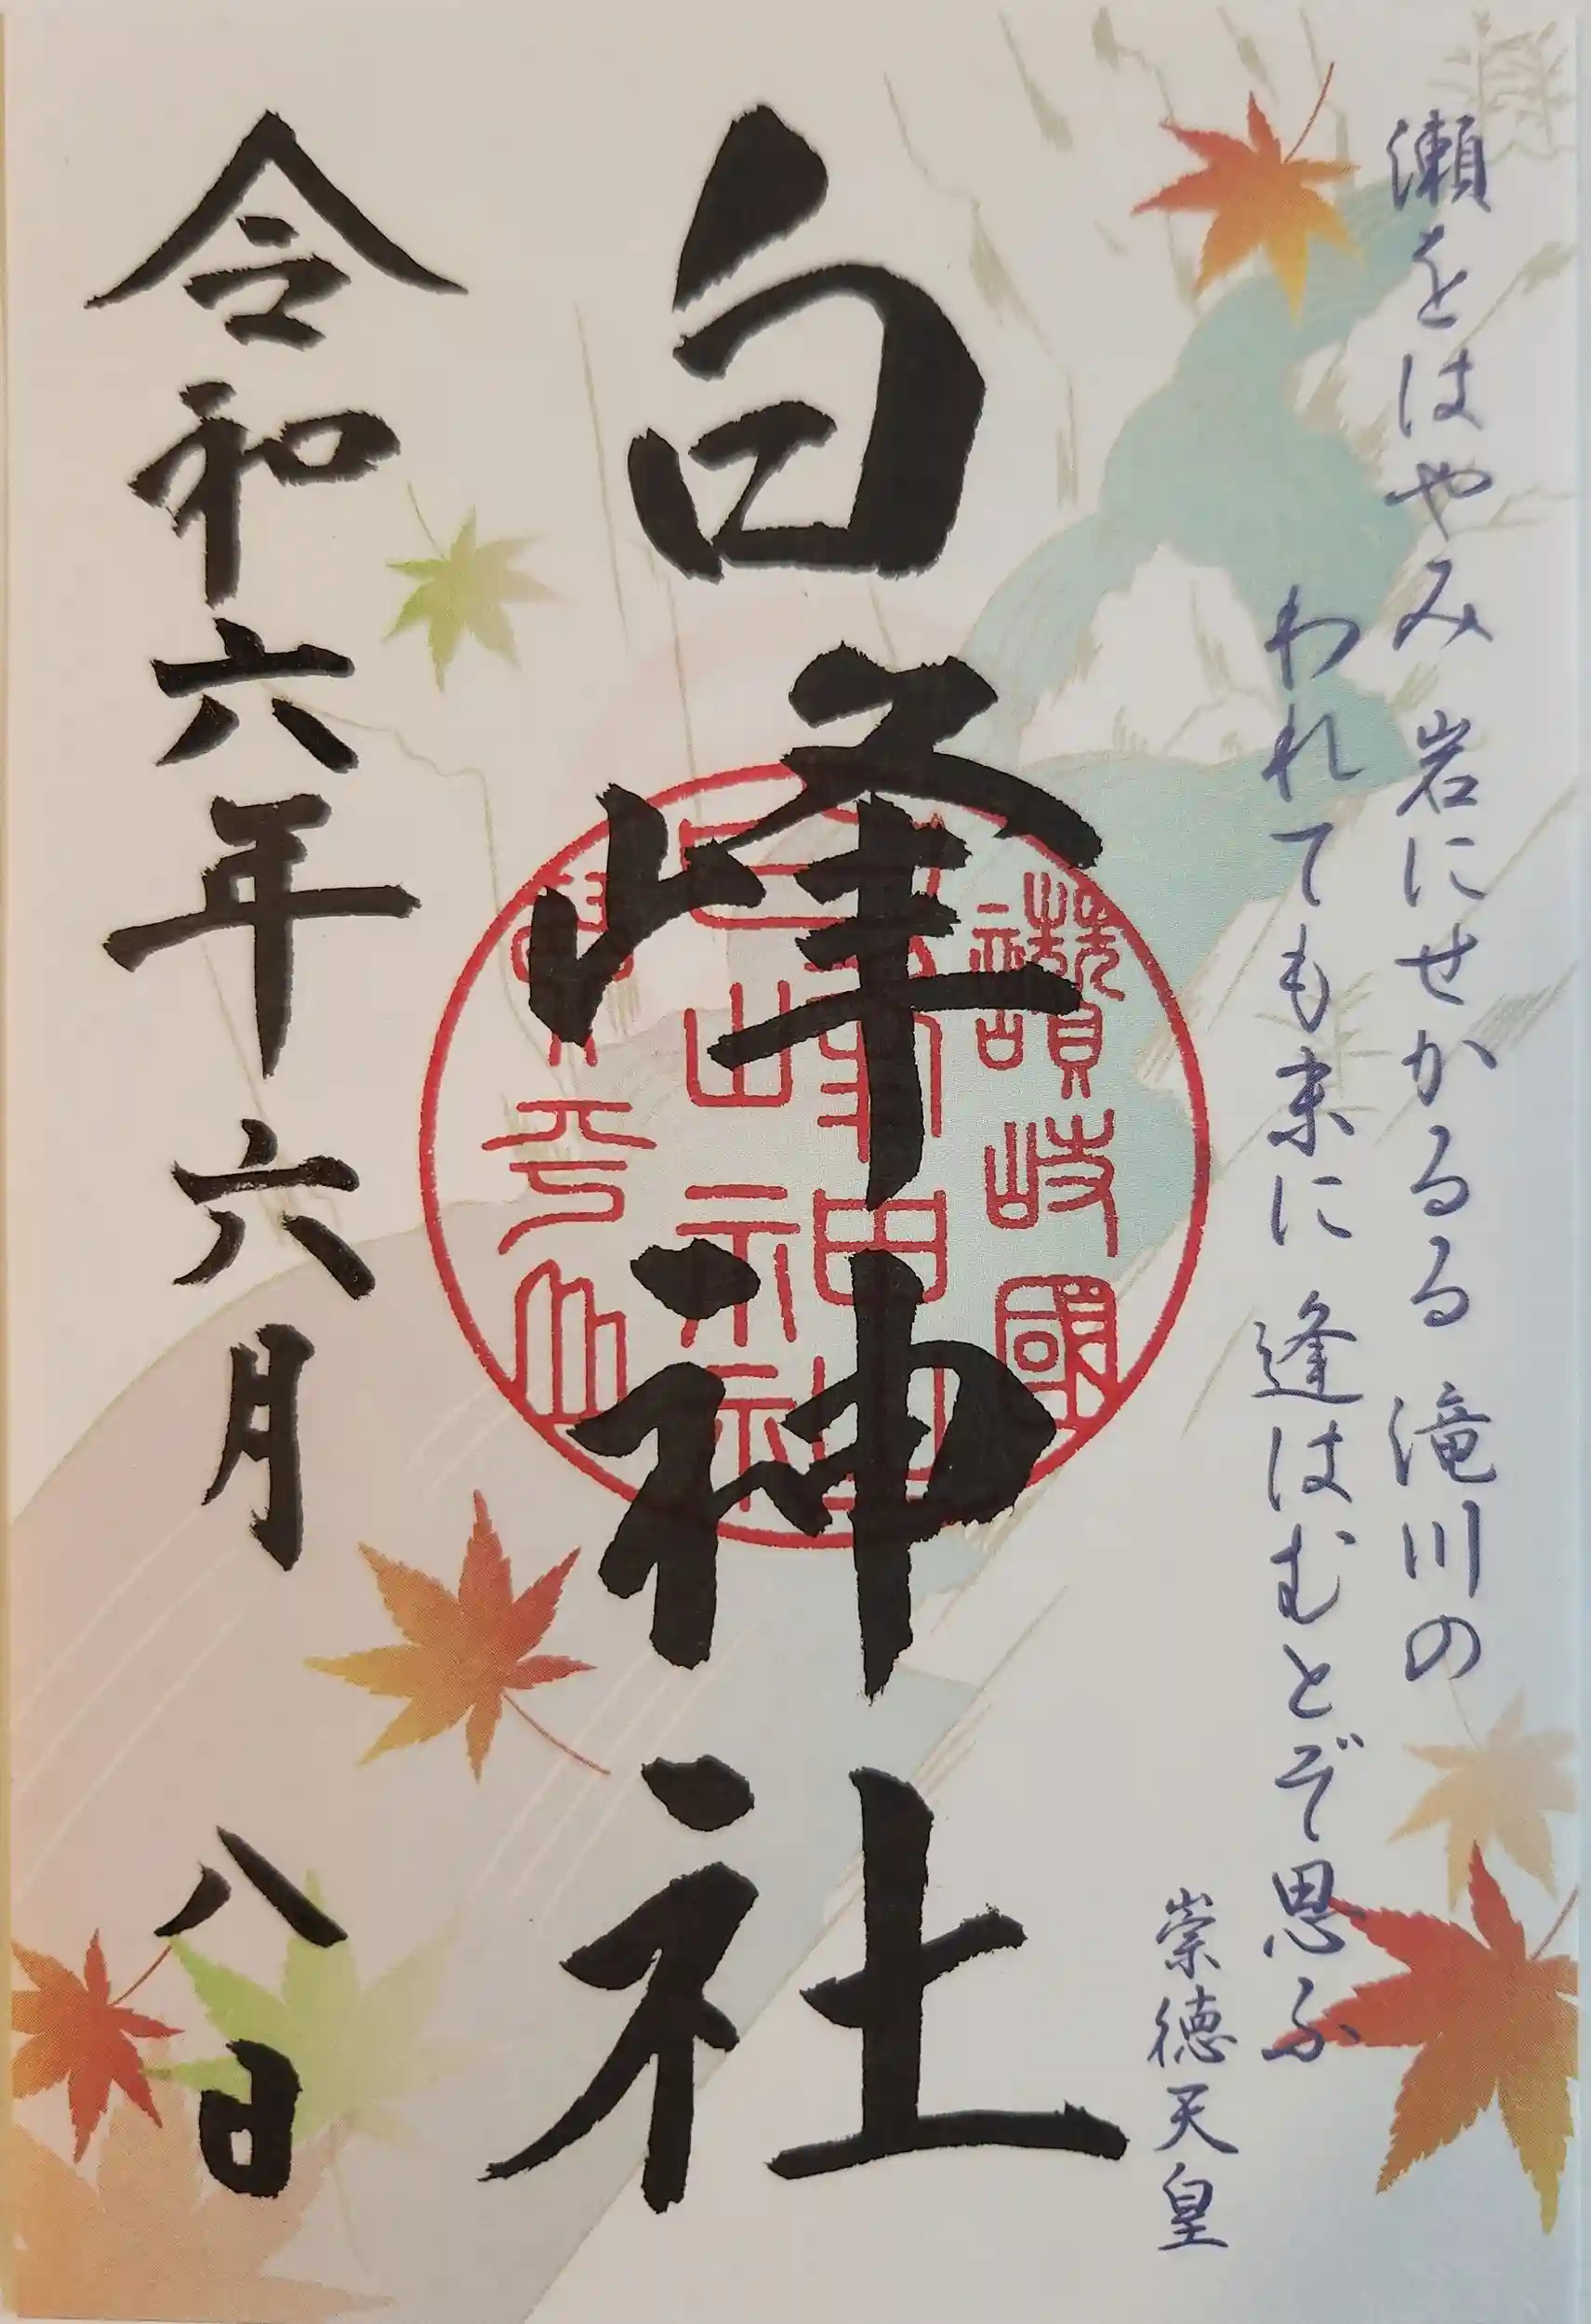 瀬をはやみ 岩にせかるる 滝川の
われても末に 逢はむとぞ思ふ
崇徳天皇
白峰神社
讃岐國
令和六年六月八日